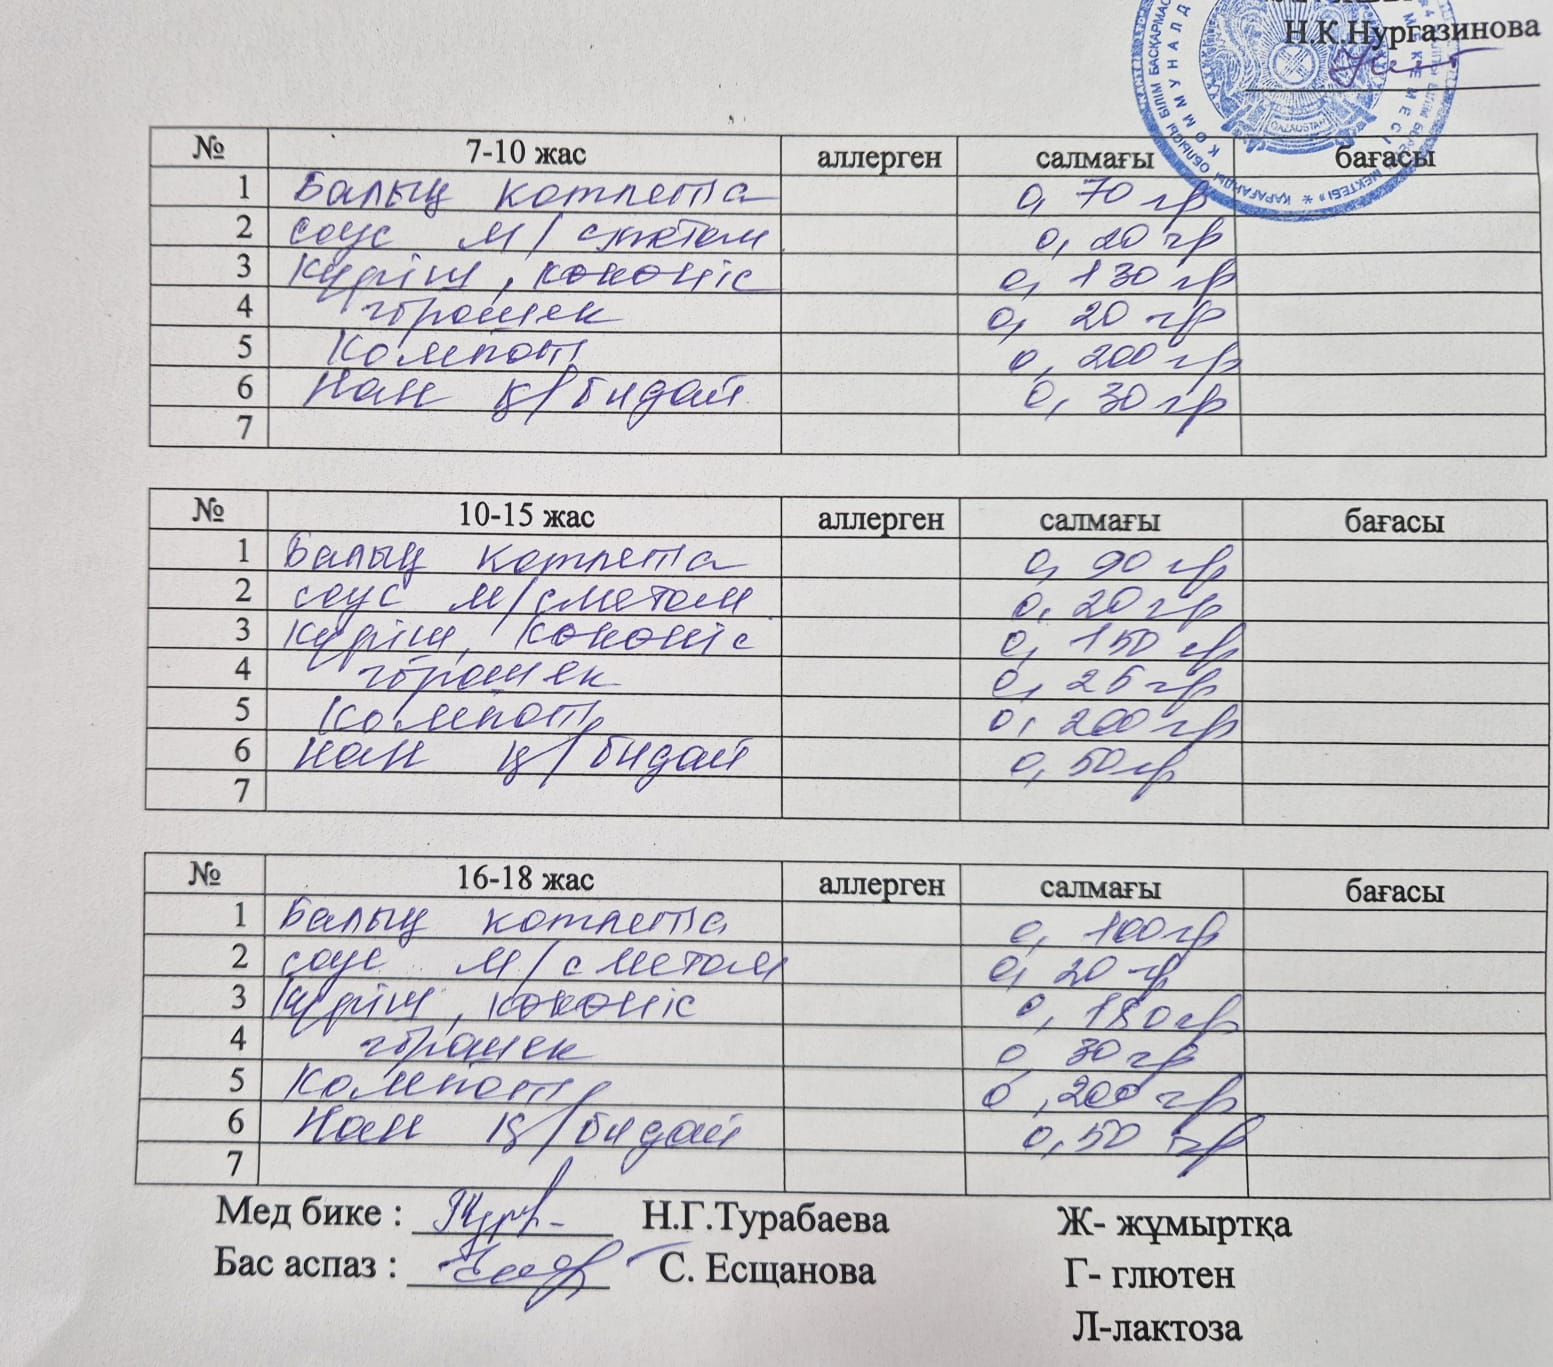 Н.К.Нургазинова
ҚАРАҒАНДЫ ОБЛЫСЫ БІЛІМ БАСҚАРМАС
КОММУНАЛД
МЕКЕМЕСІ
МЕКТЕБІ» *
QAZAQSTAN
№ 7-10 жас аллерген салмағы бағасы
1 Балық котлета 0, 70 гр
2 соус м/сметан 0, 20 гр
3 Күріш, көкөніс 0, 130 гр
4 горошек 0, 20 гр
5 Компот 0, 200 гр
6 Нан қ/бидай 0, 30 гр
7
№ 10-15 жас аллерген салмағы бағасы
1 Балық котлета 0, 90 гр
2 соус м/сметан 0, 20 гр
3 Күріш, көкөніс 0, 150 гр
4 горошек 0, 25 гр
5 Компот 0, 200 гр
6 Нан қ/бидай 0, 50 гр
7
№ 16-18 жас аллерген салмағы бағасы
1 Балық котлета 0, 100 гр
2 соус м/сметан 0, 20 гр
3 Күріш, көкөніс 0, 180 гр
4 горошек 0, 30 гр
5 Компот 0, 200 гр
6 Нан қ/бидай 0, 50 гр
7
Мед бике : Н.Г.Турабаева Ж- жұмыртқа
Бас аспаз : С. Есщанова Г- глютен
Л-лактоза